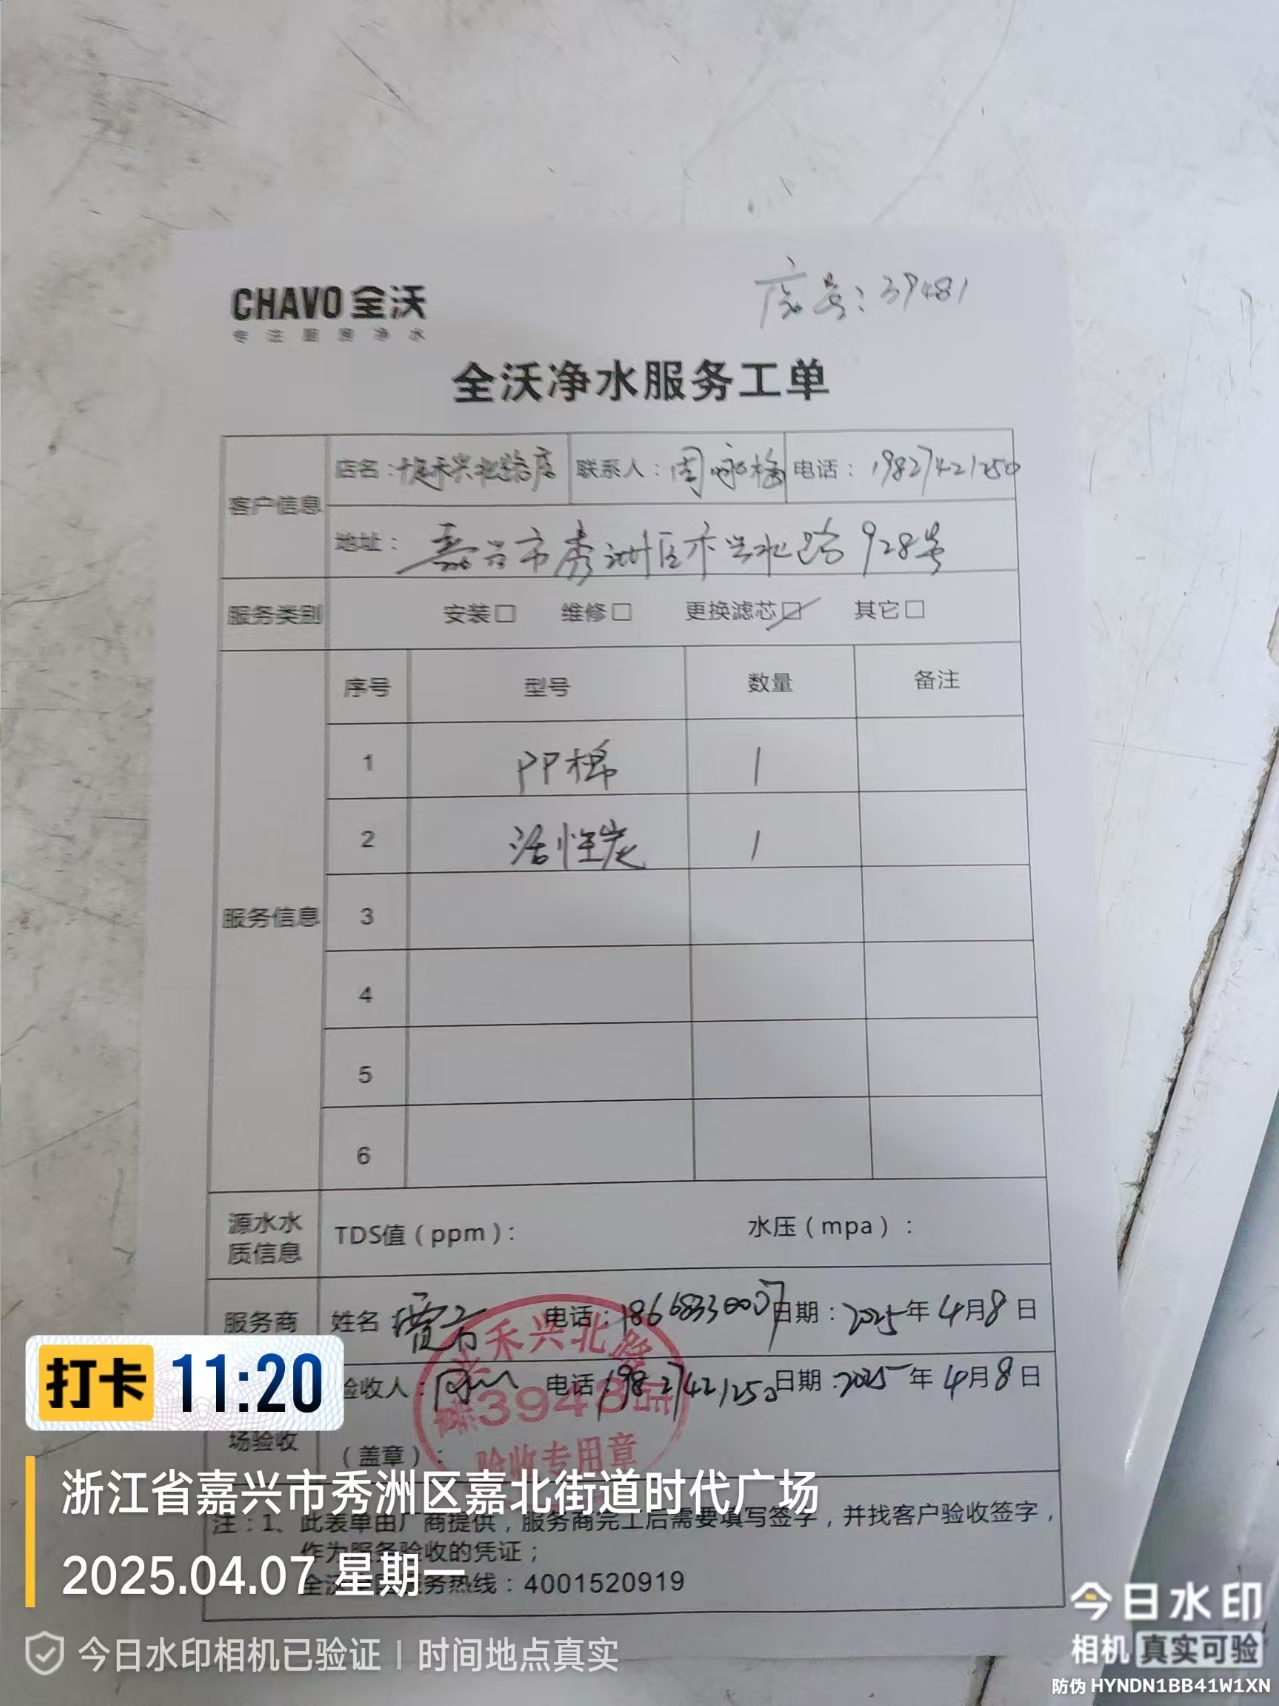 CHAVO 全沃
专注厨房净水
店号：39481
全沃净水服务工单
客户信息
店名： 禾兴北路店 联系人：周咏梅 电话：19827421250
地址：嘉兴市秀洲区禾兴北路928号
服务类别 安装□ 维修□ 更换滤芯☑ 其它□
服务信息
序号 型号 数量 备注
1 PP棉 1
2 活性炭 1
3
4
5
6
源水水质信息 TDS值（ppm）： 水压（mpa）：
服务商 姓名 电话：18668330007 日期：2025年4月8日
验收人： 电话：19827421250 日期：2025年4月8日
场验收
（盖章）：
禾兴北路店
3948
验收专用章
注：1、此表单由厂商提供，服务商完工后需要填写签字，并找客户验收签字，
作为服务验收的凭证；
全沃 服务热线：4001520919
打卡 11:20
浙江省嘉兴市秀洲区嘉北街道时代广场
2025.04.07 星期一
今日水印相机已验证 | 时间地点真实
今日水印
相机 真实可验
防伪 HYNDN1BB41W1XN